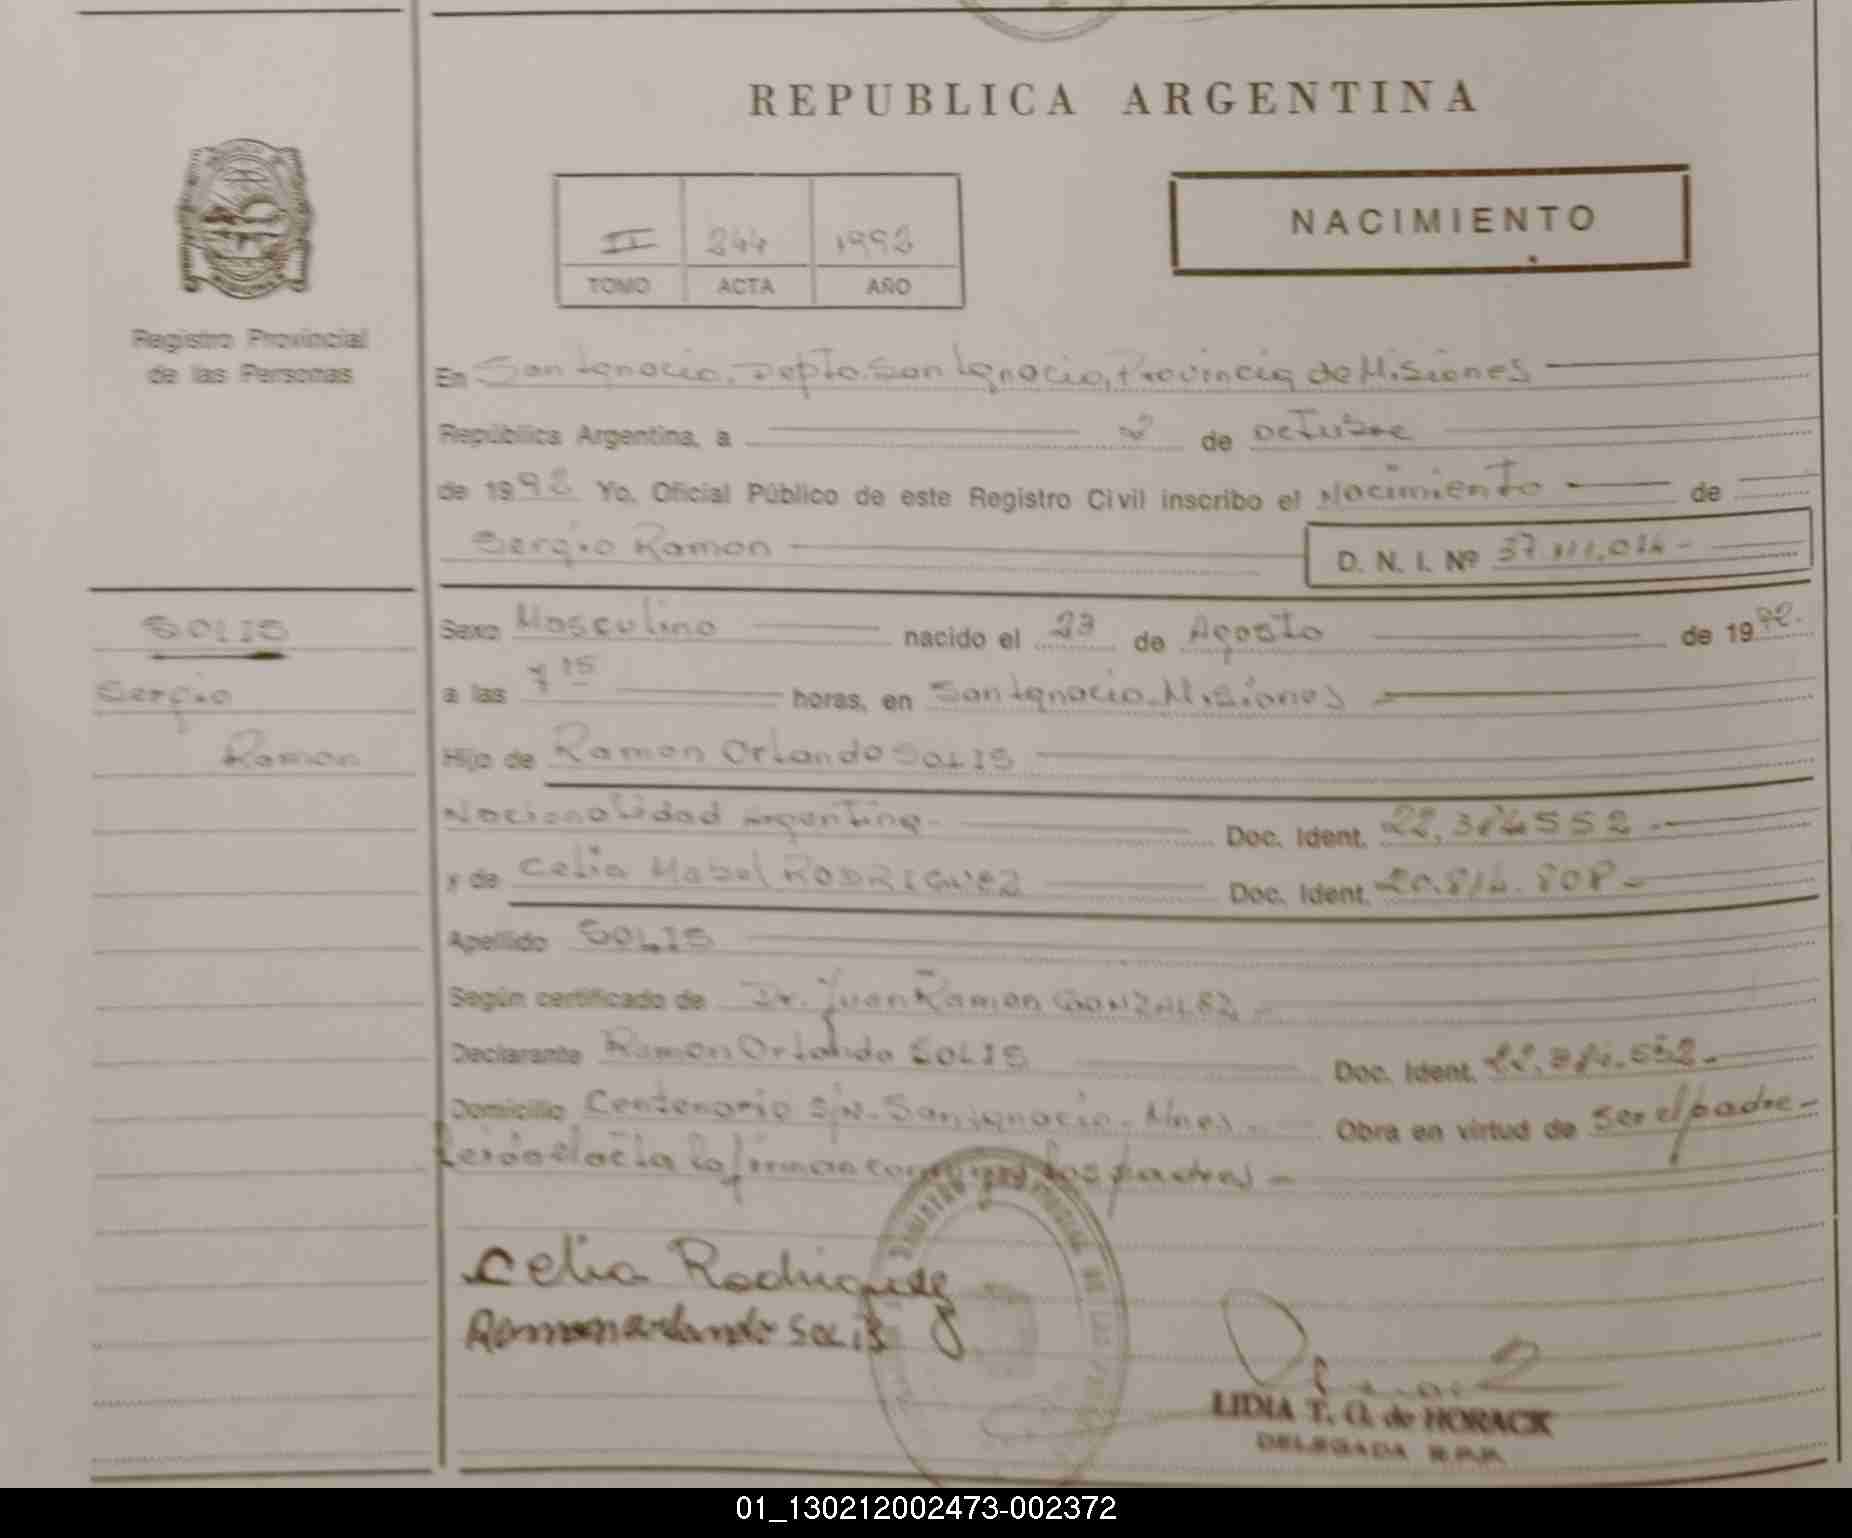 REPUBLICA ARGENTINA
NACIMIENTO
II 244 1992
TOMO ACTA AÑO
Registro Provincial
de las Personas
En San Ignacio, Depto. San Ignacio, Provincia de Misiones
República Argentina, a 2 de octubre
de 1992 Yo, Oficial Público de este Registro Civil inscribo el Nacimiento de
Sergio Ramon D. N. I. Nº
SOLIS
Sergio
Ramon
Sexo Masculino nacido el 23 de Agosto de 1992.
a las 7 15 horas, en San Ignacio. Misiones
Hijo de Ramon Orlando SOLIS
Nacionalidad Argentina- Doc. Ident.
y de Celia Mabel RODRIGUEZ Doc. Ident.
Apellido SOLIS
Según certificado de Dr. Juan Ramon GONZALEZ-
Declarante Ramon Orlando SOLIS Doc. Ident.
Domicilio Centenario S/N.- San Ignacio- Mnes.- Obra en virtud de Ser el padre-
Leida el acta la firman conmigo los padres-
Celia Rodriguez
Ramon orlando solis
LIDIA T. O. de HORACK
DELEGADA R.P.P.
01_130212002473-002372